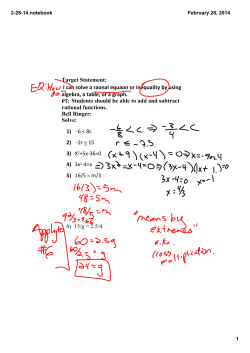 2-28-14.notebook
February 28, 2014
Target Statement:
EQ: How do I can solve a raonal equaon or inequality using
algebra, a table, or a graph.
PT: Students should be able to add and subtract
rational functions.
Bell Ringer:
Solve:
1) -6 < 8c
-6/8 < c ⇒ -3/4 < c
2) -2r ≥ 15
r ≤ -7.5
3) X²+5x-36=0
(x+9)(x-4)=0 ⇒ x=-9 or 4
4) 3x²-4=x
⇒ 3x²-x-4=0 ⇒ (3x-4)(x+1)=0
3x-4=0 x=-1
x=4/3
5) 16/5 = m/3
16(3)=5m
48=5m
48/5=m
6) 15/g = 2.5/4
60=2.5g
24=g
"means by
extremes"
a.k.a.
cross
multiplication.
1